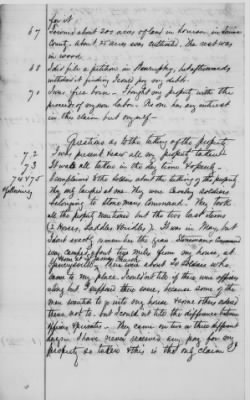 for it
67 I owned about 200 acres of land in Louisa, in Louisa
County. About 75 acres were cultivated. The rest was
in wood.
68 I did file a petition in Bankruptcy, but afterwards
withdrew it finding I could pay my debts.
70 I was free born. I bought my property with the
proceeds of my own labor. No one has any interest
in this claim but myself.
Questions as to the taking of the property
72 I was present & saw all my property taken.
73 It was all taken in the day time & openly.
74 & 75 I complained to the soldiers about the taking of the property
& following They only laughed at me. They were cavalry soldiers
belonging to Stoneman's Command. They took
all the property mentioned but the two last items
(2 Horses, Saddles & bridles). It was in May, but
I don't exactly remember the year. Stoneman's Command
was camped about two miles from my house, at
There were about 50 soldiers who
came to my place. I could not tell if there was officers
along but I suppose there were, because some of the
men wanted to go into my house & some others ordered
them not to. but I could not tell the difference between
officers & privates. They came on two or three different
days. I have never received any pay for my
property so taken & this is the only claim